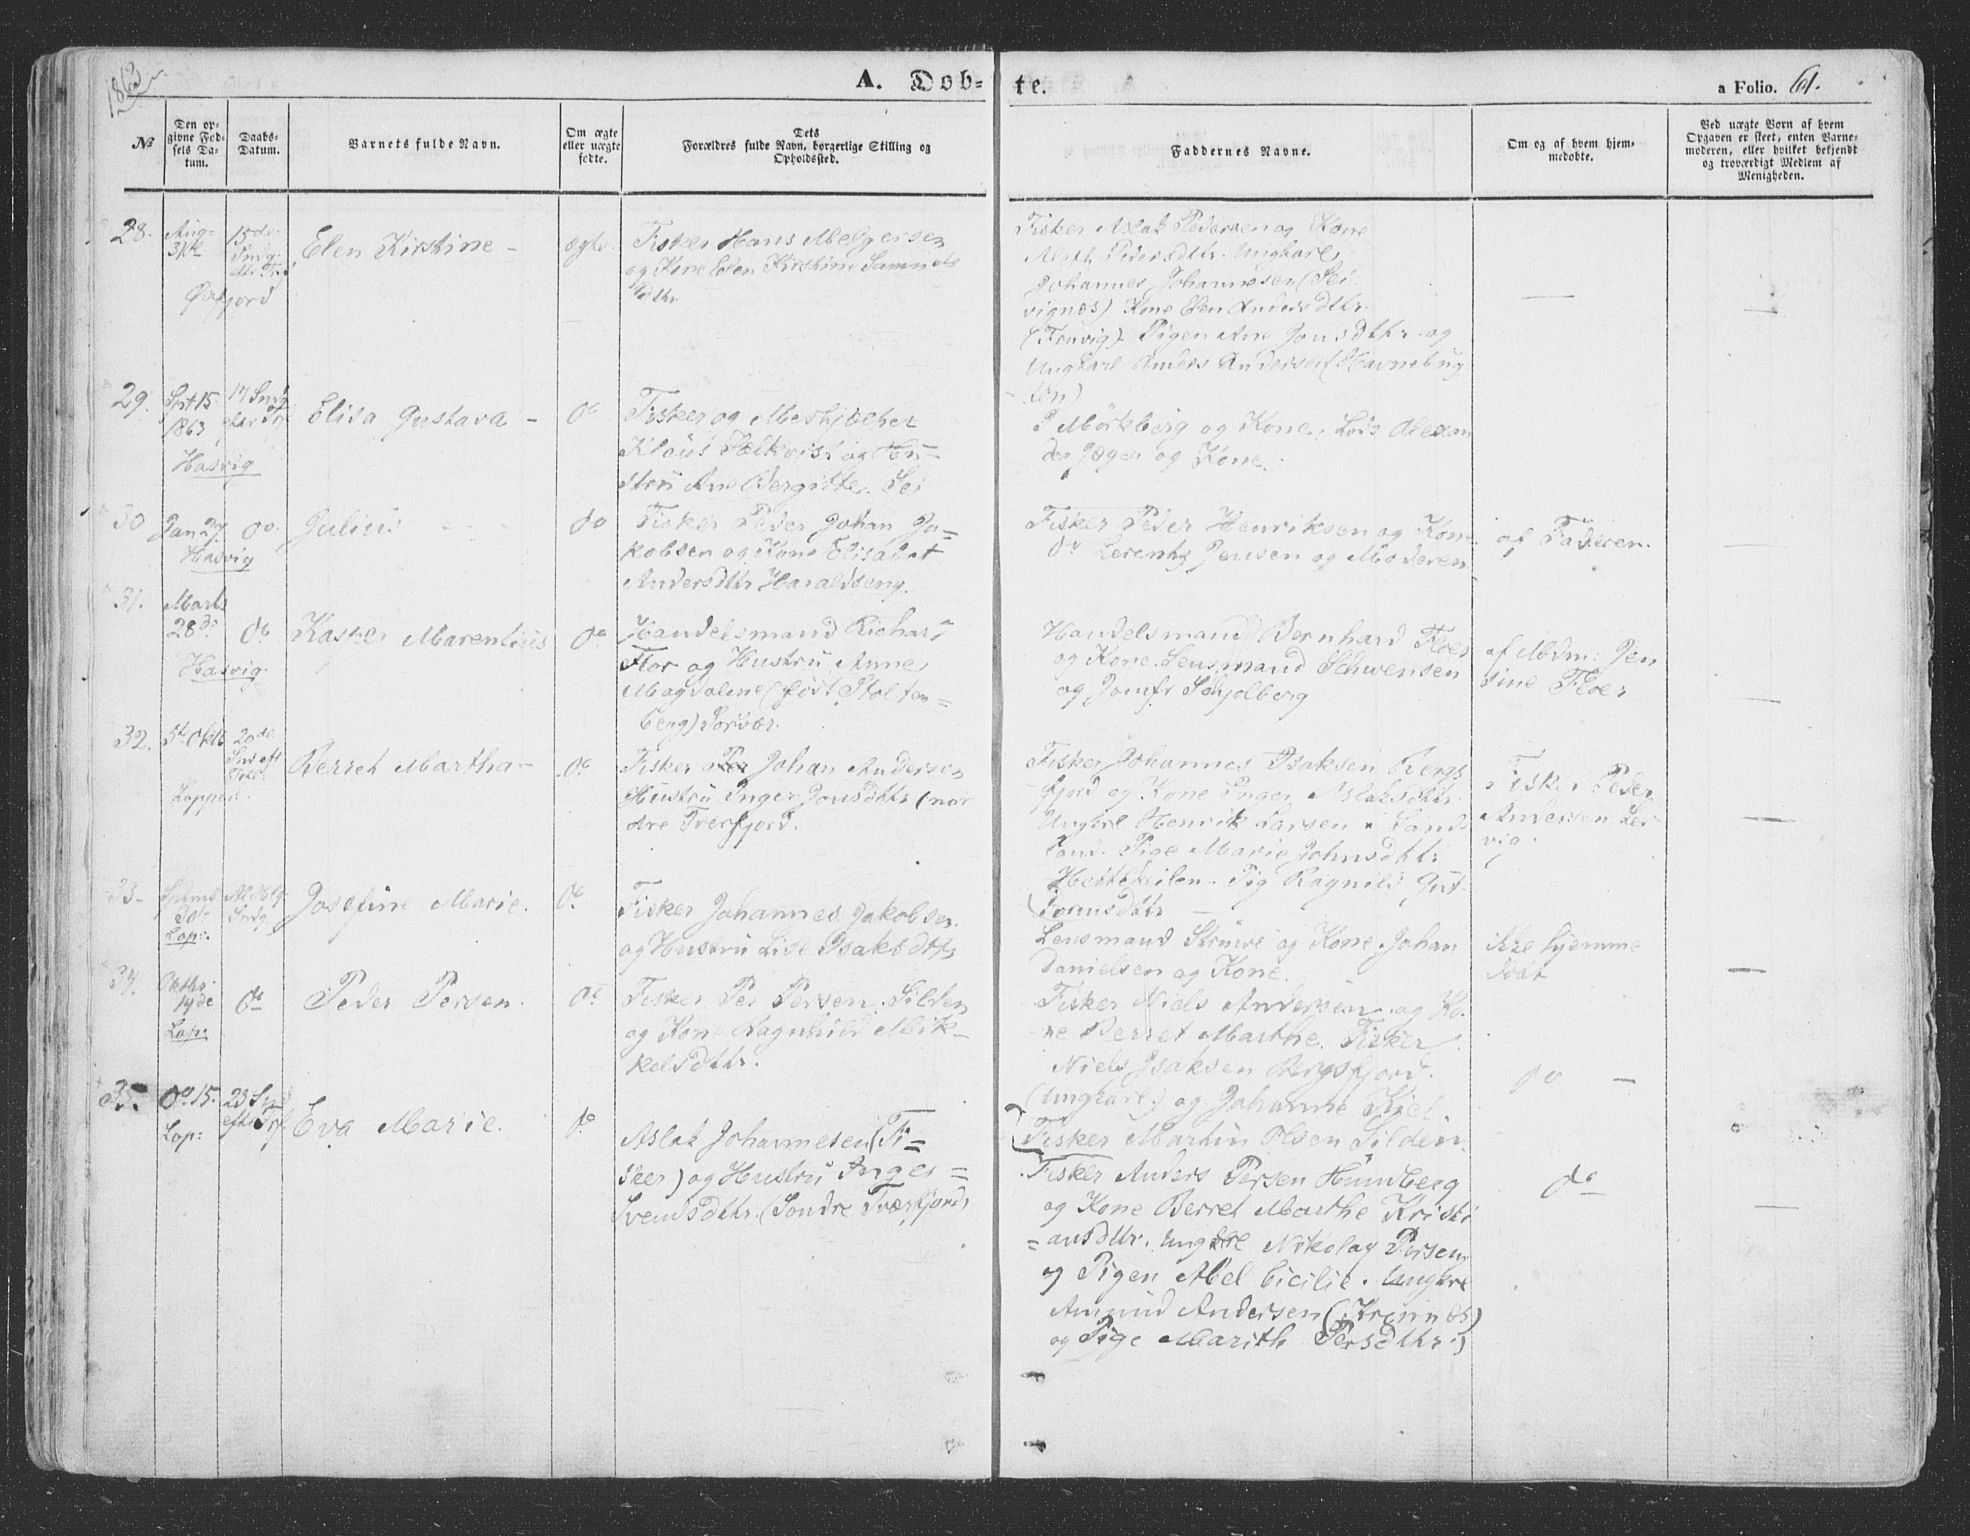 1863
A. Dob-
te.
a Folio. 61.
No
Den op-
givne Fød-
sels Da-
tum.
Daabs-
Datum.
Barnets fulde Navn.
Om ægte
eller uægte
fødte.
Dets
Forældres fulde Navn, borgerlige Stilling og
Opholdssted.
Faddernes Navne.
Om og af hvem hjem-
medøbte.
Ved uægte Børn af hvem
Opgaven er skeet, enten Barne-
moderen, eller hvilket bekjendt
og troværdigt Medlem af
Menigheden.
28.
Aug-
31te
Øxfjord
15de
Sndg.
Elen Kirstine -
ægte.
Fisker Hans Melgersen
og Kone Elen Kirstine Samuels
dtr
Fisker Aslak Pedersen og Kone
Pedersdtr. Ungkarl
Johannes Johannesen (Sei
vignes) Kone Elen Andersdtr.
Pigen Ane Jonsdthr og
Ungkarl Anders Andersen (Havnebug
ten)
29.
Spt 15
1863
Hasvig
17 Sndg
efter Trf
Elisa Gustava -
do
Fisker og Meshjælper
Klaus Falkvist og Hu-
stru Ane Bergitte. Sei
P. Mörkberg og Kone. Lods Alexan
der Jæger og Kone.
30
Jan 27
Hasvig
do.
Julius
do
Fisker Peder Johan Ja-
kobsen og Kone Elisabet
Andersdtr Haraldseng.
Fisker Peder Henriksen og Kone
do Lerentz Jensen og Moderen
af Faderen.
31.
Marts
28de
Hasvig.
do
Kasper Marentius
do
Handelsmand Richard
Flor og Hustru Anne
Magdalene (født Stolten-
berg) Sørvær.
Handelsmand Bernhard Floer
og Kone. Lensmand Schwensen
og Jomfr Schjolberg
af Mdm: Jen
sine Floer
32.
5te Oktb
Loppen.
20de
Snd eft
Tref.
Berret Martha -
do
Fisker Per Johan Andersen
Hustru Inger Jonsdtr (nor
dre Tverfjord.
Fisker Johannes Isaksen Bergs
fjord og Kone Inger Aslaksdtr.
Ungkrl Henrik Larsen Sands
land. Pige Marie Johnsdtr
Pig Ragnild Gut-
tormsdtr
Fisker Peder
Andersen Ler
vig.
33-
30de
Lop:
Sndg.
Josefine Marie.
do
Fisker Johannes Jakobsen
og Hustru Lise Isaksdtr
Lensmand Struve og Kone. Johan
Danielsen og Kone.
ikke hjemme
døbt
34.
Oktbr.
14de
Lop:
do
Peder Persen.
do
Fisker Per Persen Silden
og Kone Ragnhild Mik-
kelsdtr.
Fisker Niels Andersen og Ko-
ne Berret Marthe. Fisker
Niels Isaksen Bergsfjord.
(Ungkarl.) og Johanne Kiel.
Fisker Martin Olsen Silden.
do -
35.
do 15.
Lop:
23 Snd
efter Trf.
Eva Marie.
do
Aslak Johannesen (Fi-
sker) og Hustru Inger
Svendsdtr. (Søndre Tværfjord)
Fisker Anders Persen
og Kone Berret Marthe Kristi
=ansdtr. Nikolay Persen
og Pigen Abel Cicilie. Ungkrl
Amund Andersen
og Pige Marith Persdthr.)
do